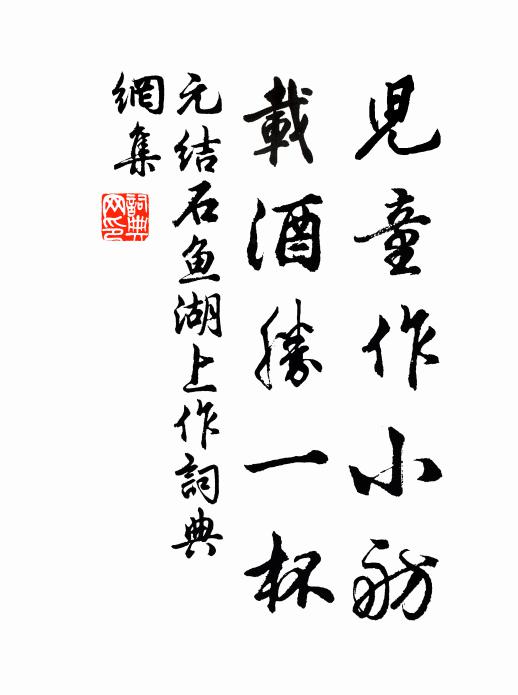 兒童作小舫
載酒勝一杯
元结石鱼湖上作詞典
網集
詞典
网印